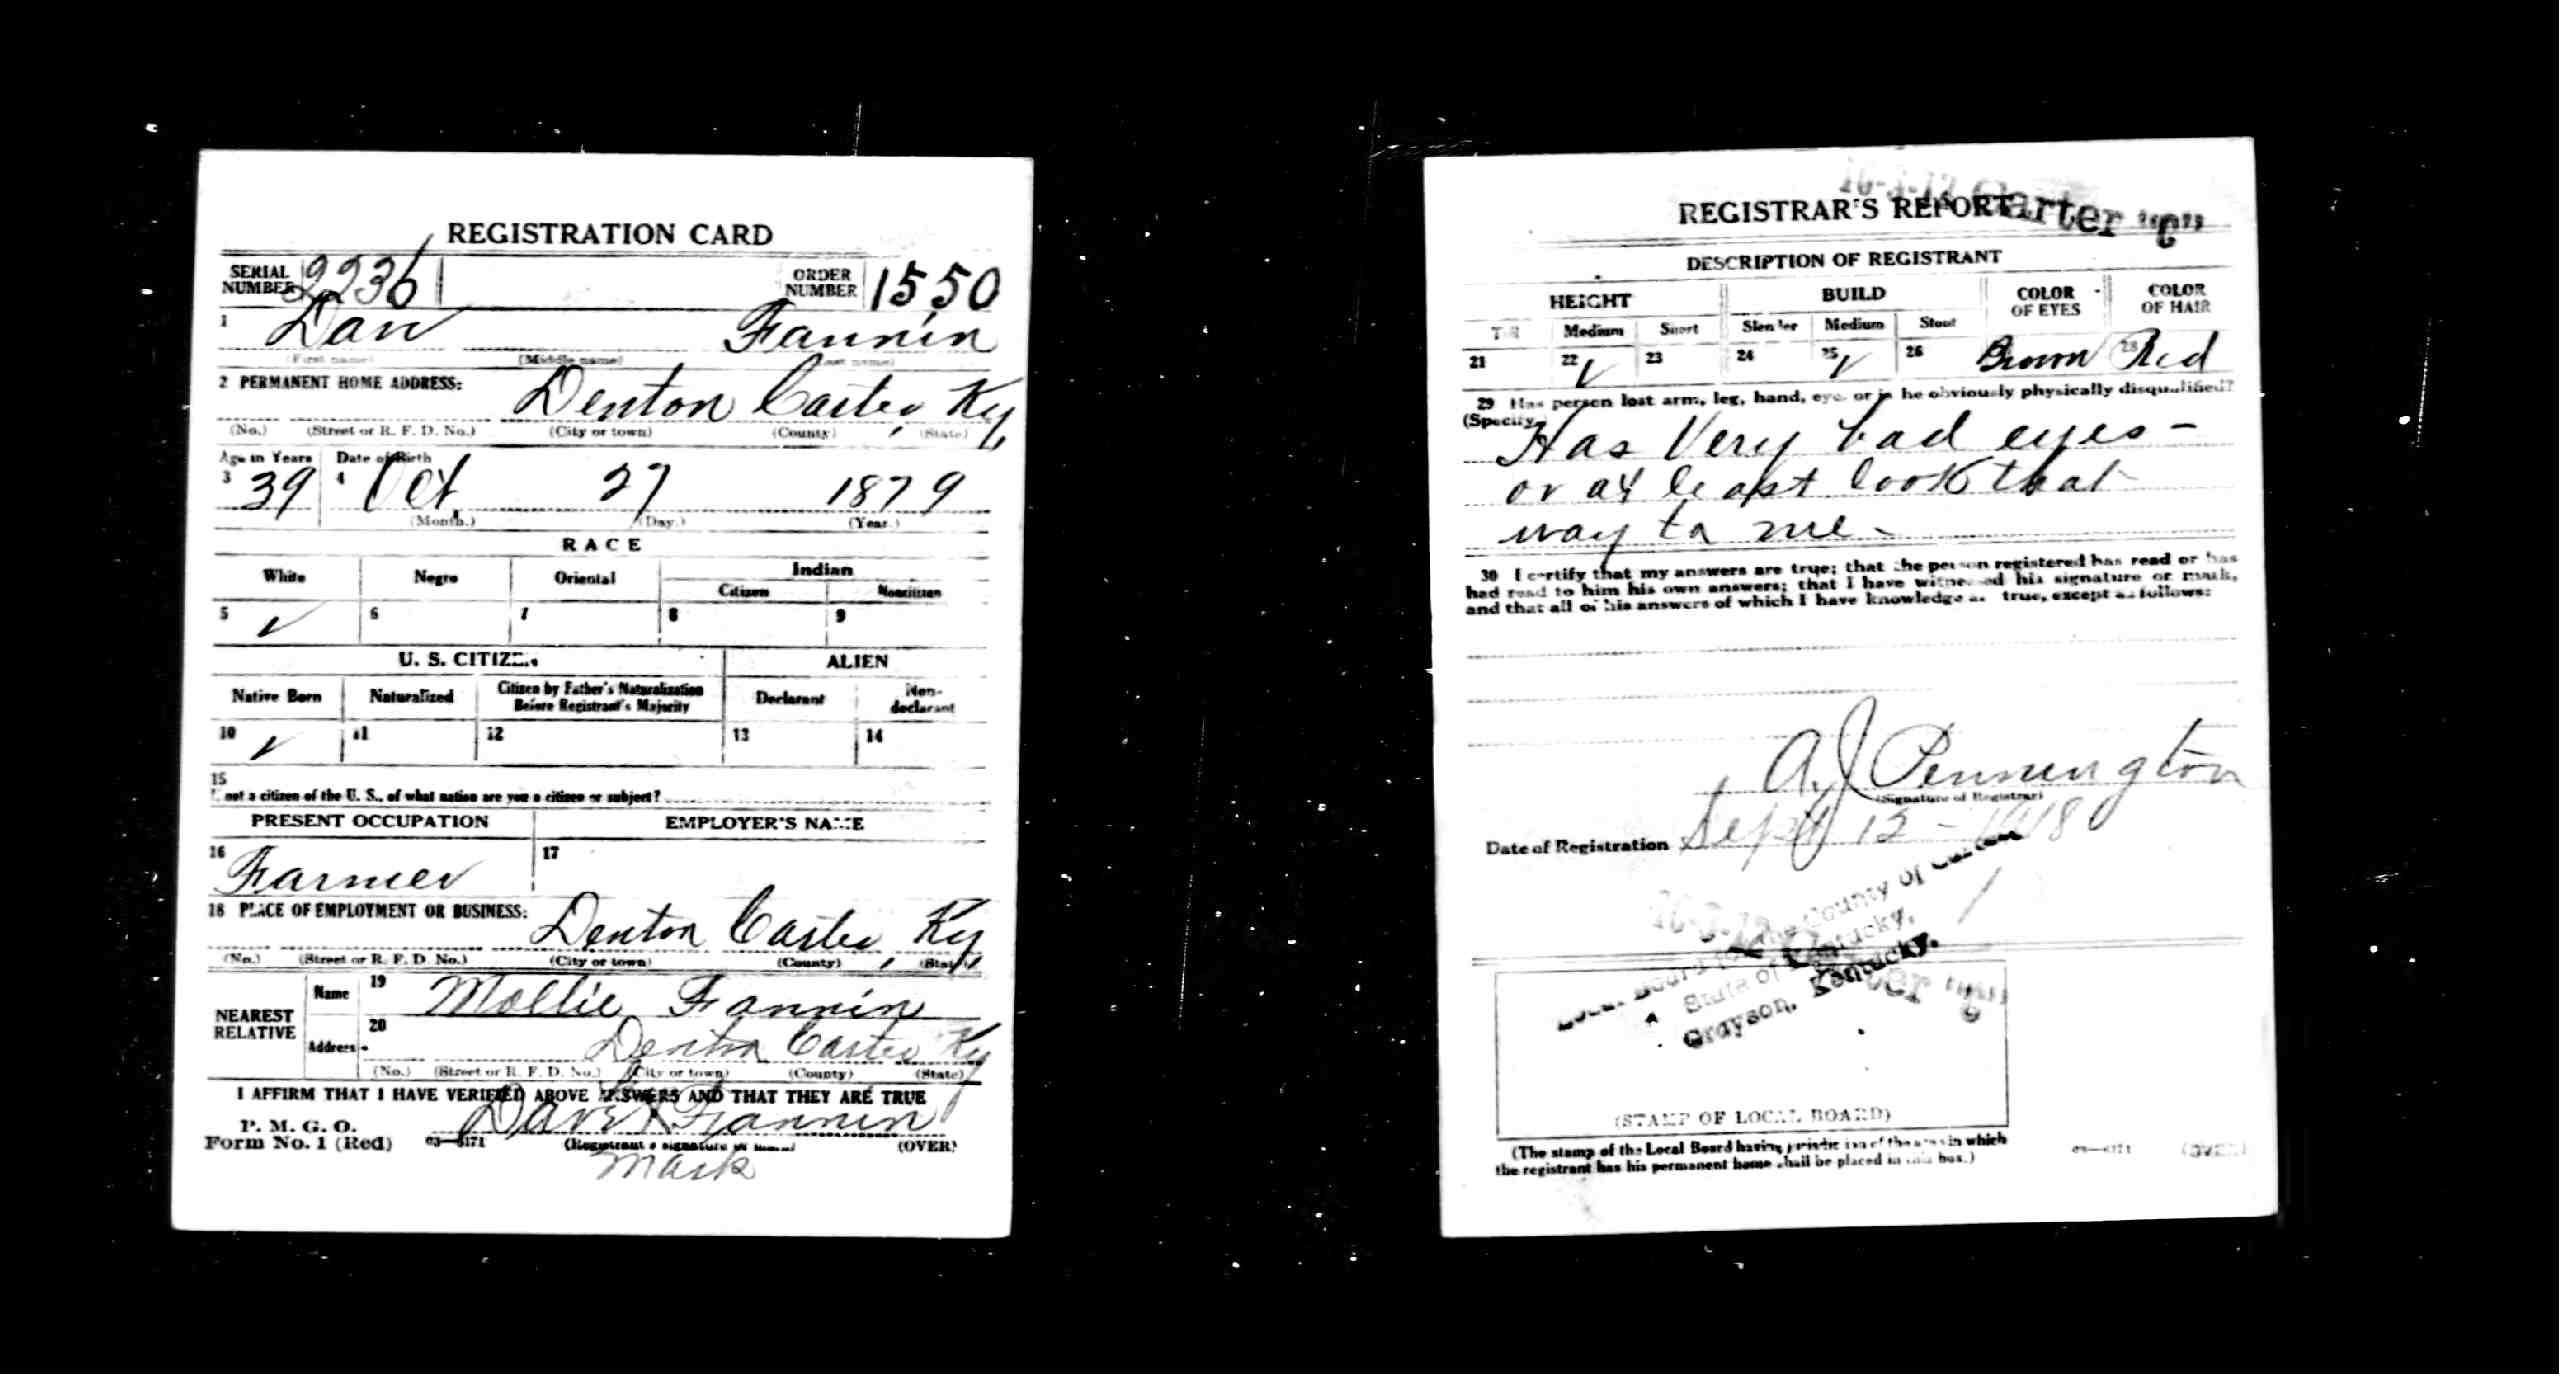 REGISTRATION CARD
SERIAL NUMBER 2236 ORDER NUMBER 1550
1 Dav Fannin
(First name) (Middle name) (Last name)
2 PERMANENT HOME ADDRESS:
Denton Carter, Ky,
(No.) (Street or R. F. D. No.) (City or town) (County) (State)
Age in Years Date of Birth
3 39 4 Oct 27 1879
(Month.) (Day.) (Year.)
RACE
White Negro Oriental Indian
Citizen Noncitizen
5 ✓ 6 7 8 9
U. S. CITIZEN ALIEN
Native Born Naturalized Citizen by Father's Naturalization Before Registrant's Majority Declarant Non-declarant
10 ✓ 11 12 13 14
15
If not a citizen of the U. S., of what nation are you a citizen or subject?
PRESENT OCCUPATION EMPLOYER'S NAME
16 Farmer 17
18 PLACE OF EMPLOYMENT OR BUSINESS:
Denton Carter, Ky,
(No.) (Street or R. F. D. No.) (City or town) (County) (State)
NEAREST RELATIVE
Name 19 Mollie Fannin
Address 20 Denton Carter Ky
(No.) (Street or R. F. D. No.) (City or town) (County) (State)
I AFFIRM THAT I HAVE VERIFIED ABOVE ANSWERS AND THAT THEY ARE TRUE
Dav X Fannin
P. M. G. O.
Form No. 1 (Red) 03—6171 (Registrant's signature or mark) (OVER)
mark
REGISTRAR'S REPORT
Carter "C"
DESCRIPTION OF REGISTRANT
HEIGHT BUILD COLOR OF EYES COLOR OF HAIR
Tall Medium Short Slender Medium Stout
21 22 ✓ 23 24 25 ✓ 26 Brown 28 Red
29 Has person lost arm, leg, hand, eye, or is he obviously physically disqualified?
(Specify.)
Has Very bad eyes -
or at least look that
way to me -
30 I certify that my answers are true; that the person registered has read or has
had read to him his own answers; that I have witnessed his signature or mark,
and that all of his answers of which I have knowledge are true, except as follows:
A. J. Pennington
(Signature of Registrar)
Date of Registration Sept 12 - 1918
Local Board for the County of Carter
State of Kentucky,
Grayson, Kentucky.
(STAMP OF LOCAL BOARD)
(The stamp of the Local Board having jurisdiction of the area in which
the registrant has his permanent home shall be placed in this box.)
03—6171 (OVER)